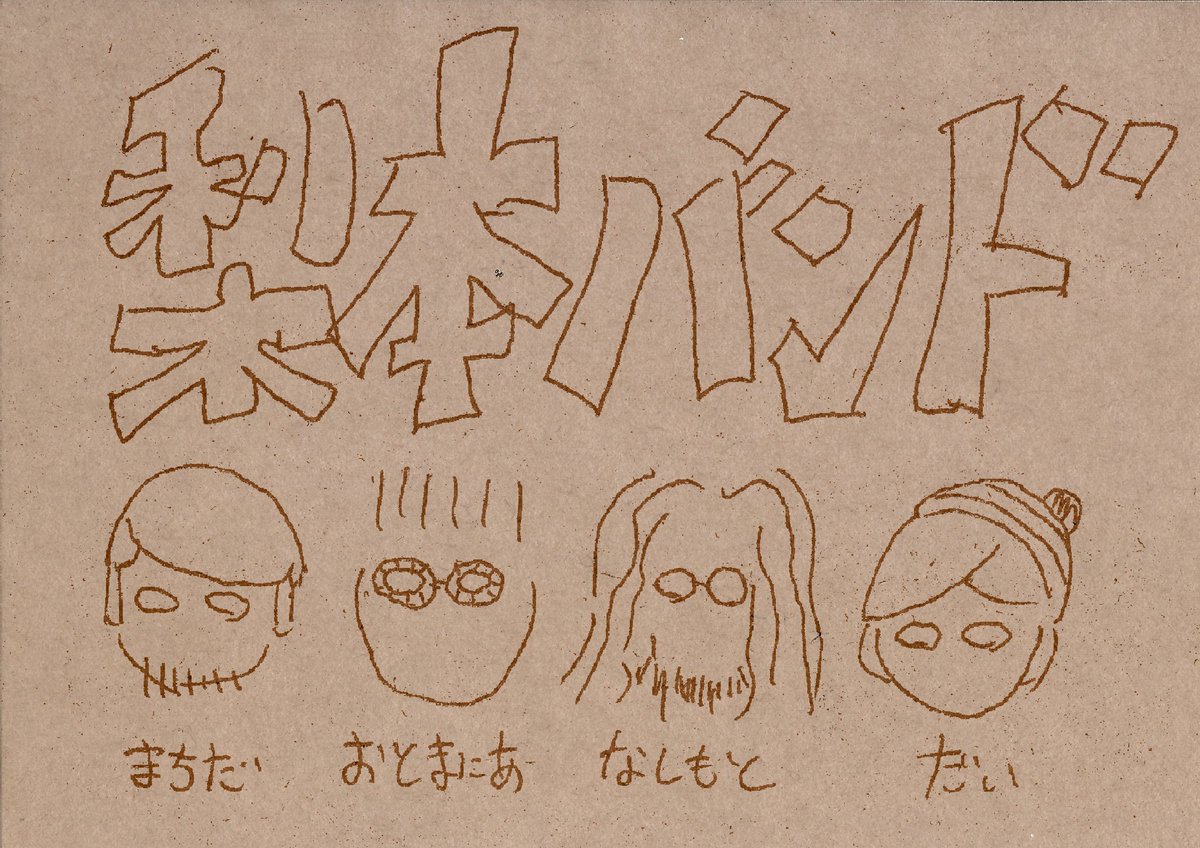 梨本バンド
まちだ おとまにあ なしもと だい